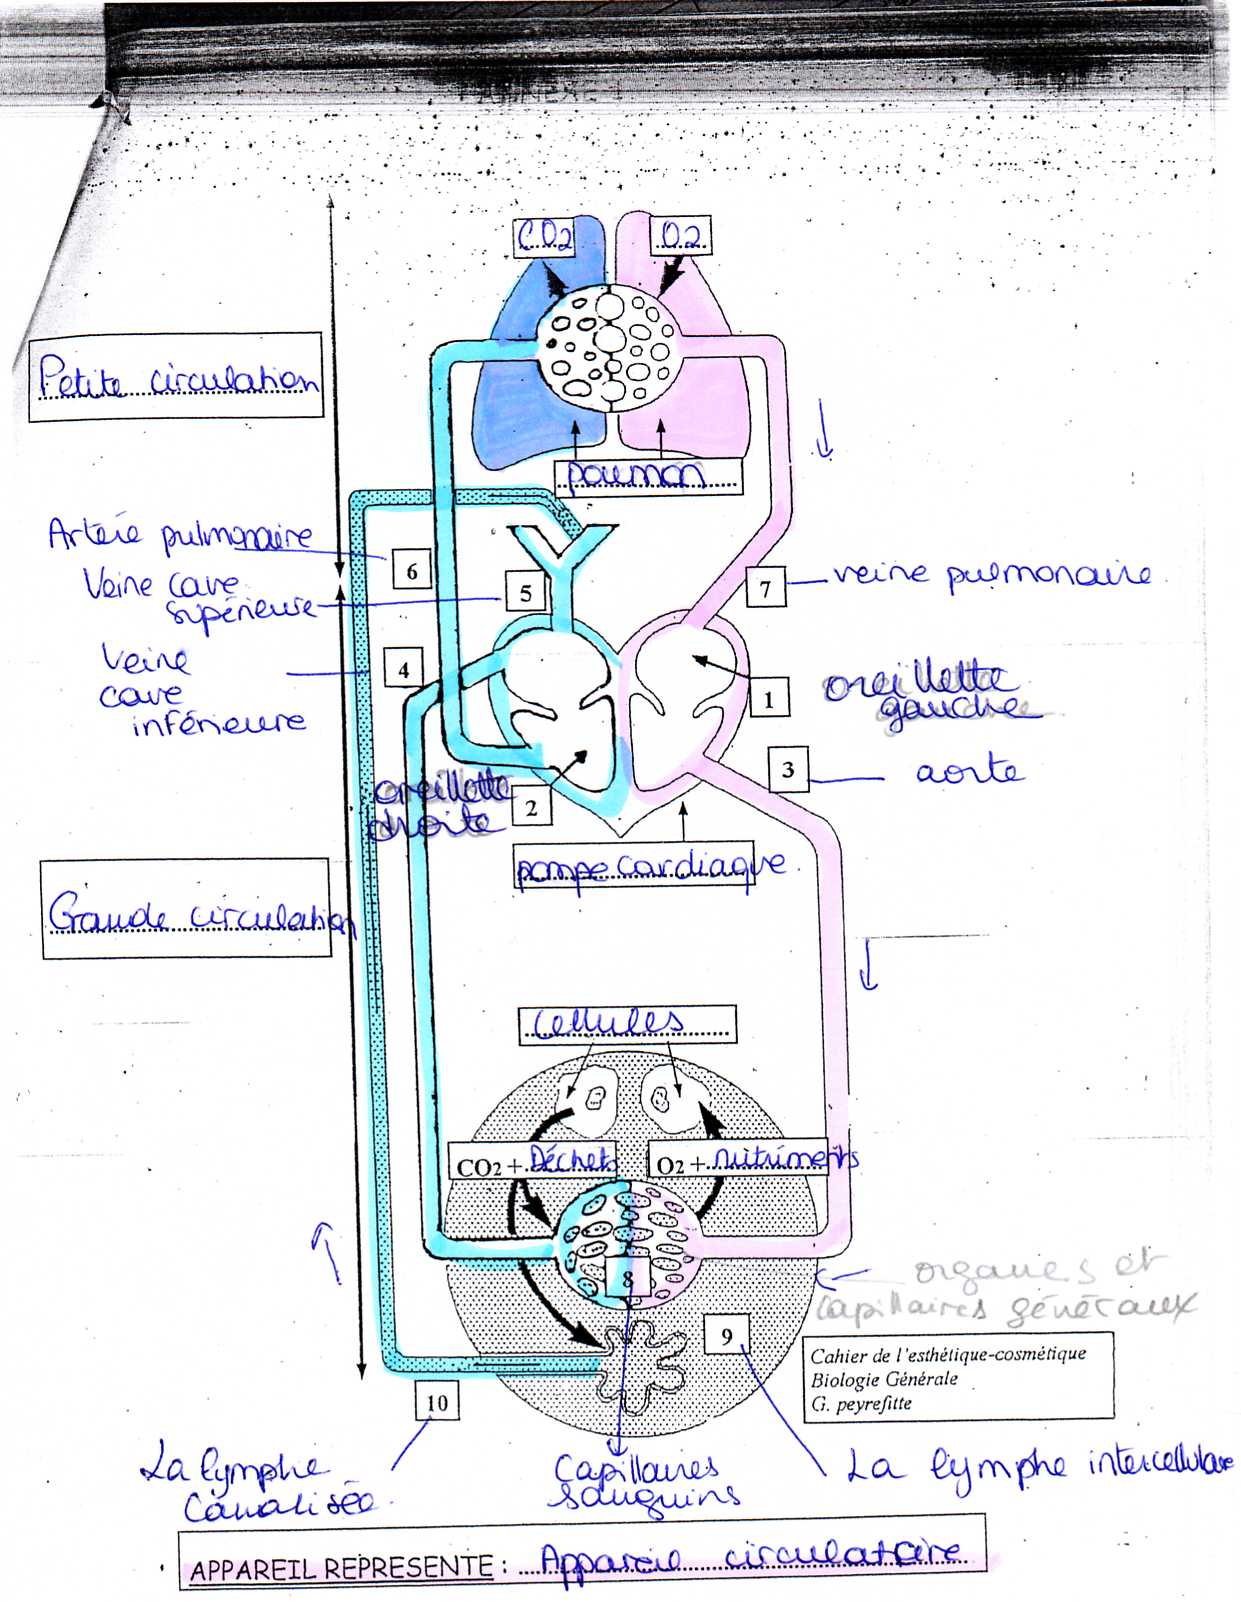 ANNEXE 1
CO2
O2
Petite circulation
poumon
Artère pulmonaire
6
Veine cave
supérieure
5
7
veine pulmonaire
Veine
cave
inférieure
4
1
oreillette
gauche
3
aorte
oreillette
droite
2
pompe cardiaque
Grande circulation
Cellules
CO2 + Déchets
O2 + nutriments
8
organes et
capillaires généraux
9
Cahier de l'esthétique-cosmétique
Biologie Générale
G. peyrefitte
10
La lymphe
Canalisée
Capillaires
sanguins
La lymphe intercellulaire
APPAREIL REPRESENTE : Appareil circulatoire